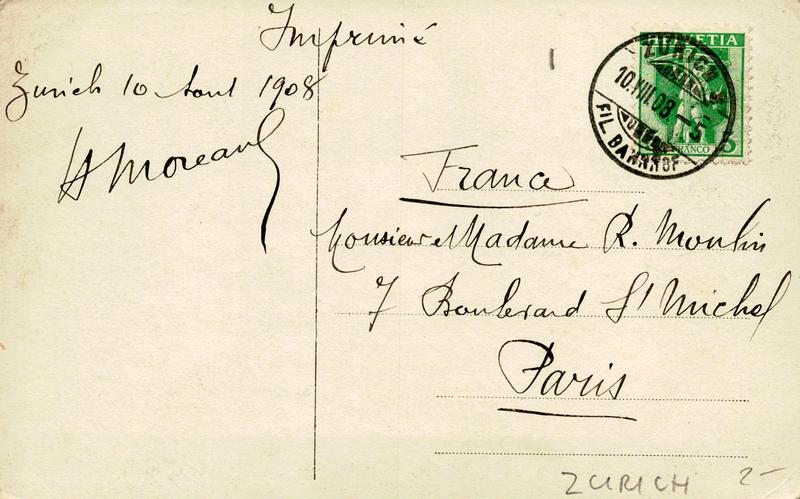 Imprimé
Zurich 10 Aout 1908
H Moreau
HELVETIA
FRANCO 5
ZÜRICH
10.VIII.08-5
FIL. BAHNHOF
France
Monsieur et Madame R. Moulin
7 Boulevard St Michel
Paris
ZURICH 2-